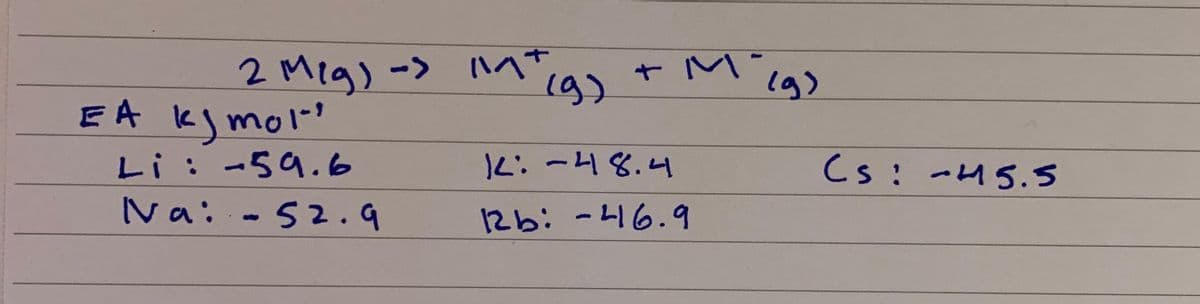 2 M(g) -> M⁺(g) + M⁻(g)
EA kJ mol⁻¹
Li : -59.6 K: -48.4 Cs: -45.5
Na: -52.9 Rb: -46.9